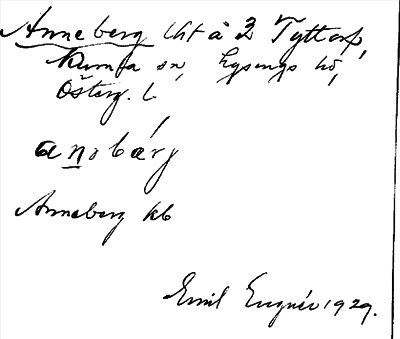 Anneberg lht å 2 Tyttorp,
Rumfa sn, Lysings hd,
Österg. l.
anəbárj
Anneberg kb
Emil Eugnér 1929.